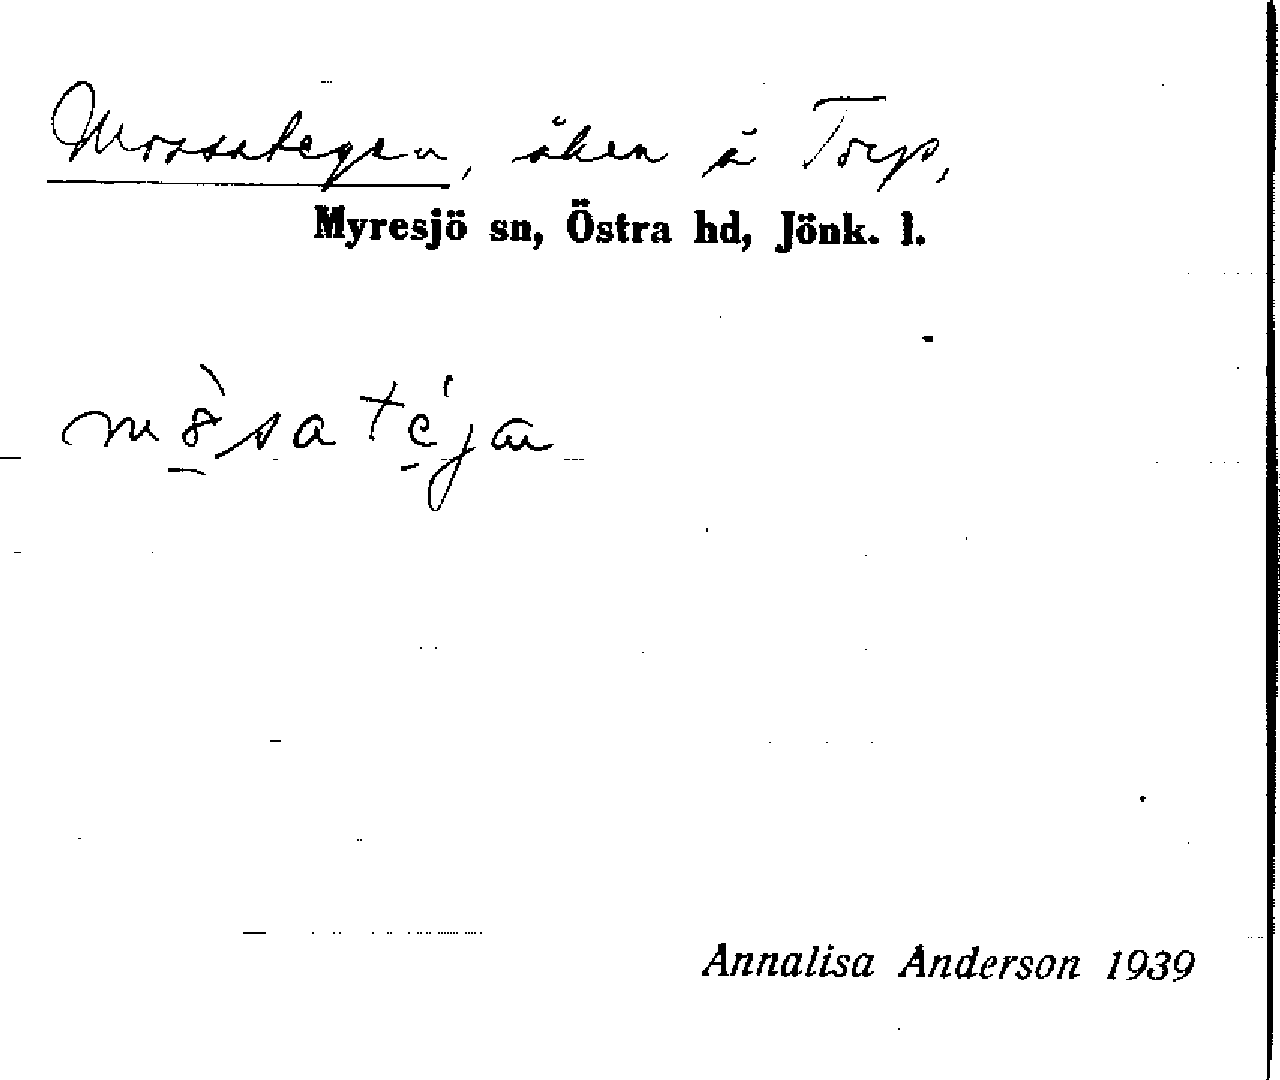 Mossategen, åken å Torp,
Myresjö sn, Östra hd, Jönk. l.
Annalisa Anderson 1939